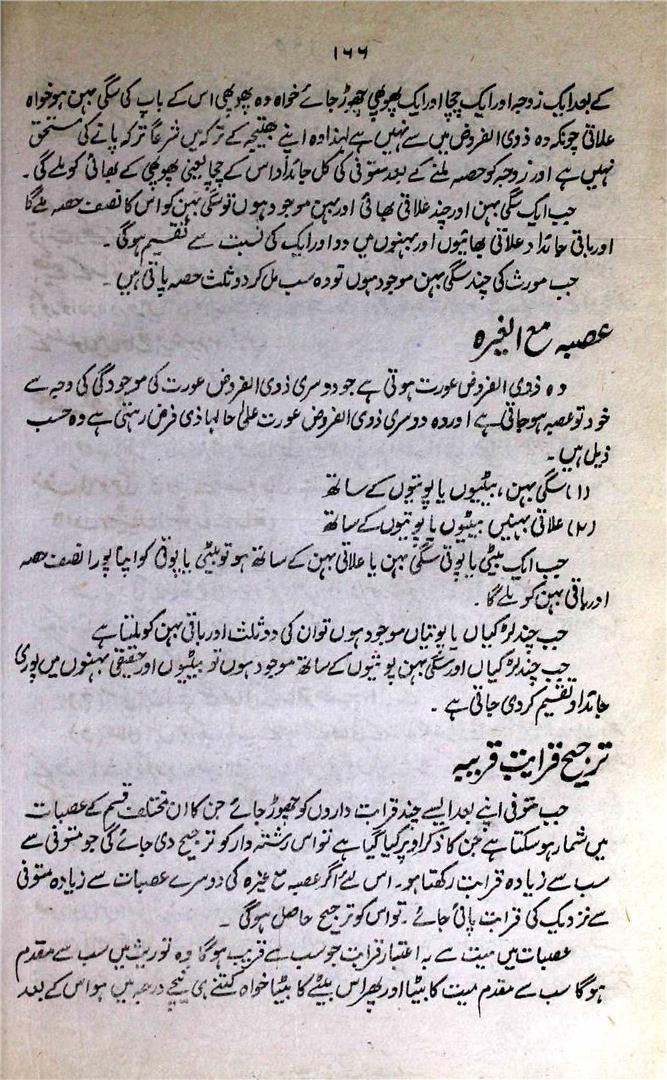 ۱۶۶
کے بعد ایک زوجہ اور ایک چچا اور ایک پھوپھی چھوڑ جائے خواہ وہ پھوپھی اس کے باپ کی سگی بہن ہو خواہ
علاتی چونکہ وہ ذوی الفروض میں سے نہیں ہے لہذا وہ اپنے بھتیجہ کے ترکہ میں شرعاً ترکہ پانے کی مستحق
نہیں ہے اور زوجہ کو حصہ ملنے کے بعد متوفی کی کل جائداد اس کے چچا یعنی پھوپھی کے بھائی کو ملے گی۔
جب ایک سگی بہن اور چند علاتی بھائی اور بہن موجود ہوں تو سگی بہن کو اس کا نصف حصہ ملے گا
اور باقی جائداد علاتی بھائیوں اور بہنوں میں دو اور ایک کی نسبت سے تقسیم ہوگی۔
جب مورث کی چند سگی بہن موجود ہوں تو وہ سب مل کر دو ثلث حصہ پاتی ہیں۔
عصبہ مع الغیرہ
وہ ذوی الفروض عورت ہوتی ہے جو دوسری ذوی الفروض عورت کی موجودگی کی وجہ سے
خود تو عصبہ ہو جاتی ہے اور وہ دوسری ذوی الفروض عورت علیٰ حالہا ذی فرض رہتی ہے وہ حسب
ذیل ہیں۔
(۱) سگی بہن، بیٹیوں یا پوتیوں کے ساتھ
(۲) علاتی بہنیں بیٹیوں یا پوتیوں کے ساتھ
جب ایک بیٹی یا پوتی سگی بہن یا علاتی بہن کے ساتھ ہو تو بیٹی یا پوتی کو اپنا پورا نصف حصہ
اور باقی بہن کو ملے گا۔
جب چند لڑکیاں یا پوتیاں موجود ہوں تو ان کی دو ثلث اور باقی بہن کو ملتا ہے
جب چند لڑکیاں اور سگی بہن پوتیوں کے ساتھ موجود ہوں تو بیٹیوں اور حقیقی بہنوں میں پوری
جائداد تقسیم کر دی جاتی ہے۔
ترجیح قرابت قریبہ
جب متوفی اپنے بعد ایسے چند قرابت داروں کو چھوڑ جائے جن کا ان مختلف قسم کے عصبات
میں شمار ہو سکتا ہے جن کا ذکر اوپر کیا گیا ہے تو اس رشتہ دار کو ترجیح دی جائے گی جو متوفی سے
سب سے زیادہ قرابت رکھتا ہو۔ اس لئے اگر عصبہ مع غیرہ کی دوسرے عصبات سے زیادہ متوفی
سے نزدیک کی قرابت پائی جائے۔ تو اس کو ترجیح حاصل ہوگی۔
عصبات میں میت سے بہ اعتبار قرابت جو سب سے قریب ہوگا وہ توریث میں سب سے مقدم
ہوگا سب سے مقدم میت کا بیٹا اور پھر اس بیٹے کا بیٹا خواہ کتنے ہی نیچے درجہ میں ہو اس کے بعد